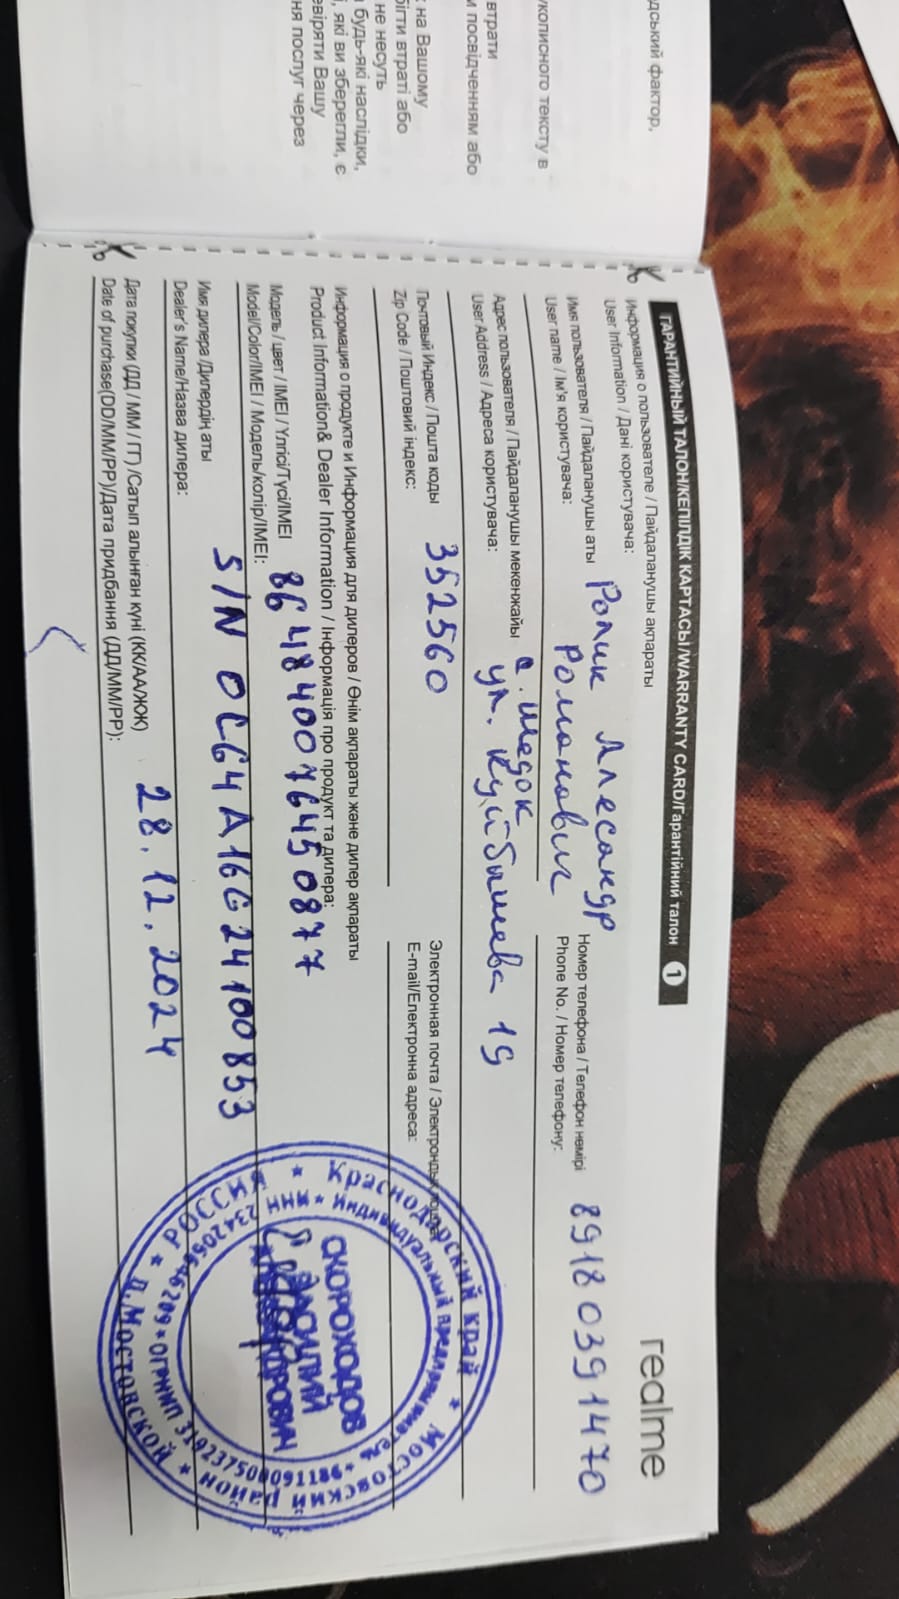 дський фактор,
кописного тексту в
втрати
и посвідченням або
на Вашому
бігти втраті або
не несуть
будь-які наслідки,
, які ви зберегли, є
евіряти Вашу
ня послуг через
ГАРАНТИЙНЫЙ ТАЛОН/КЕПІЛДІК КАРТАСЫ/WARRANTY CARD/Гарантійний талон 1
realme
Информация о пользователе / Пайдаланушы ақпараты
User Information / Дані користувача:
Имя пользователя / Пайдаланушы аты Ролик Алесандр
User name / Ім'я користувача: Романович
Номер телефона / Телефон нөмірі
Phone No. / Номер телефону: 89180391470
Адрес пользователя / Пайдаланушы мекенжайы с. Шедок
User Address / Адреса користувача: ул. Куйбышева 19
Почтовый Индекс / Пошта коды
Zip Code / Поштовий індекс: 352560
Электронная почта /
E-mail/Електронна адреса:
Информация о продукте и Информация для дилеров / Өнім ақпараты және дилер ақпараты
Product Information& Dealer Information / Інформація про продукт та дилера:
Модель / цвет / IMEI / Үлгісі/Түсі/IMEI
Model/Color/IMEI / Модель/колір/IMEI: 864840076450877
Имя дилера /Дилердің аты S/N 0C64A16G24100853
Dealer's Name/Назва дилера:
Дата покупки (ДД / ММ / ГГ) /Сатып алынған күні (КК/АА/ЖЖ)
Date of purchase(DD/MM/PP)/Дата придбання (ДД/ММ/РР): 28.12.2024
РОССИЯ * Краснодарский край * Мостовский район * п.Мостовской *
Индивидуальный предприниматель * ОГРНИП 319237500091186 * ИНН
СКОРОХОДОВ
ВАСИЛИЙ